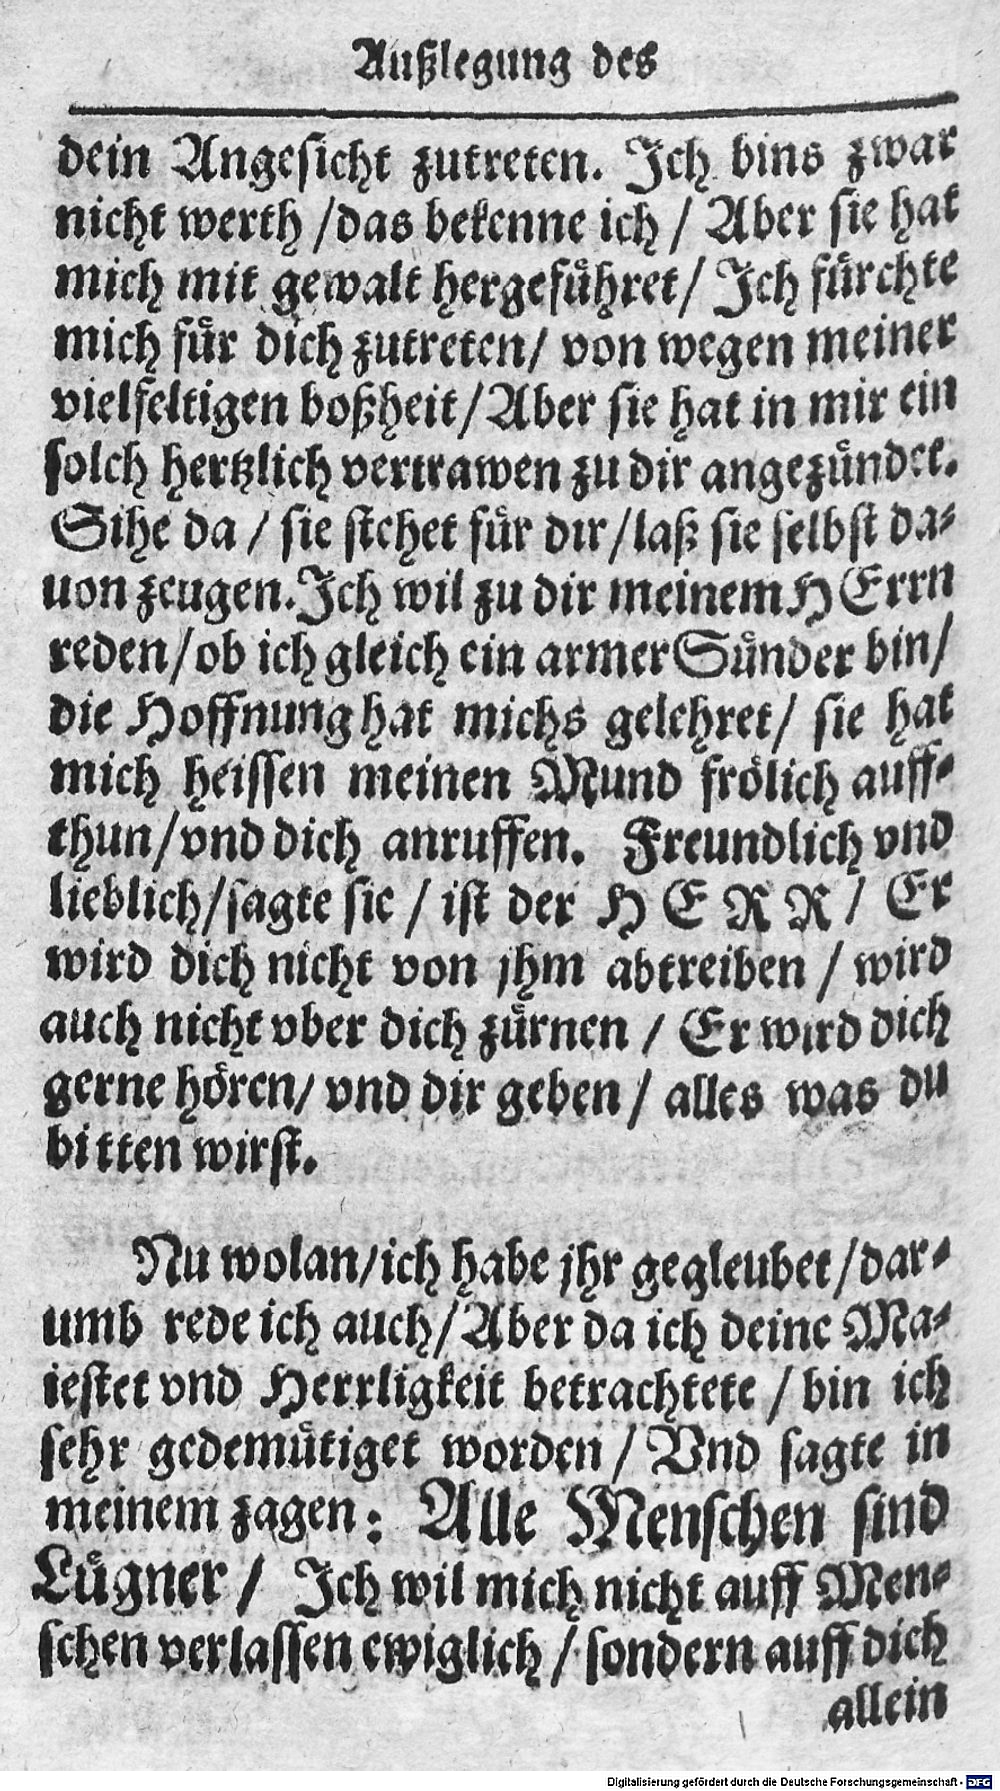 Außlegung des
dein Angesicht zutreten. Ich bins zwar
nicht werth /das bekenne ich / Aber sie hat
mich mit gewalt hergefuͤhret/ Ich fuͤrchte
mich fuͤr dich zutreten/ von wegen meiner
vielfeltigen boßheit/Aber sie hat in mir ein
solch hertzlich vertrawen zu dir angezuͤndet.
Sihe da / sie stehet fuͤr dir/laß sie selbst da⸗
uon zeugen. Ich wil zu dir meinem HErrn
reden/ob ich gleich ein armer Suͤnder bin/
die Hoffnung hat michs gelehret/ sie hat
mich heissen meinen Mund froͤlich auff⸗
thun/vnd dich anruffen. Freundlich vnd
lieblich/sagte sie / ist der HERR / Er
wird dich nicht von jhm abtreiben / wird
auch nicht vber dich zuͤrnen / Er wird dich
gerne hoͤren/ vnd dir geben / alles was du
bitten wirst.
Nu wolan/ich habe jhr gegleubet/dar⸗
umb rede ich auch/Aber da ich deine Ma⸗
iestet vnd Herrligkeit betrachtete / bin ich
sehr gedemuͤtiget worden / Vnd sagte in
meinem zagen: Alle Menschen sind
Luͤgner / Ich wil mich nicht auff Men⸗
schen verlassen ewiglich / sondern auff dich
allein
Digitalisierung gefördert durch die Deutsche Forschungsgemeinschaft - DFG